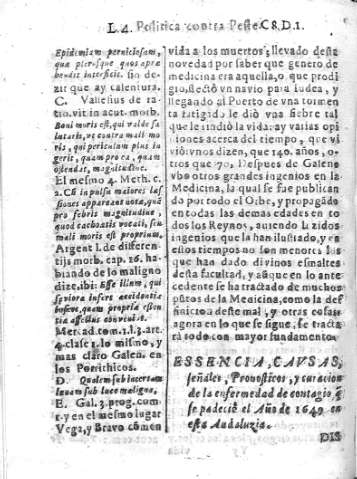 L. 4. Politica contra Peste. C 8. D. 1.
Epidemiam perniciosam,
quæ plerosque quos apræ
hendit interficit. sin de-
zir que ay calentura.
C. Vallesius de ra-
tio. vit in acut. morb.
Boni moris est, qui valde sa
lutaris, ut contra mali mo
ris, qui periculum plus in
gerit, quam pro ea, quam
ostendat, magnitudine.
El mesmo 4. Meth. c.
2. Cū in pulsu maiores læs
siones appareant vota, quā
pro febris magnitudine,
quod cachoætis vocati, seu
mali moris est proprium.
Argent l. de differen-
tijs morb. cap. 16. ha-
blando de lo maligno
dize, ibi: Esse illum, qui
sæviora infert accidentia
quam propria essen
tia affectus
Mercad. tom. 1. l. 3. art.
4. clase 1. lo mismo, y
mas claro Galen. en
los Porrihicos.
D. Qualem sub incertam
lunam sub luce maligna.
E. Gal. 3. prog. com
1. y en el mesmo lugar
Vega, y Bravo comen
vida a los muertos; llevado desta
novedad por saber que genero de
medicina era aquella, o que prodi
gio, fletò vn navio para Iudea, y
llegando al Puerto de vna tormen
ta fatigado le diò vna fiebre tal
que le rindiò la vida: ay varias opi
niones acerca del tiempo, que vi
viò; vnos dizen, que 140. años, o
tros que 70. Despues de Galeno
vbo otros grandes ingenios en la
Medicina, la qual se fue publican
do por todo el Orbe, y propagādo
en todas las demas edades en to
dos los Reynos, aviendo luzidos
ingenios que la han ilustrado, y en
estos tiempos no son menores los
que han dado divinos esmaltes
desta facultad, y aūque en lo ante
cedente se ha tractado de muchos
pūtos de la Medicina, como la def
finicion deste mal, y otras cosas
agora en lo que se sigue, se tracta
rà todo con mayor fundamento.
ESSENCIA, CAVSAS,
señales, Pronosticos, y curacion
de la enfermedad de contagio q̄
se padeciò el Año de 1649 en
esta Andaluzia.
DIS